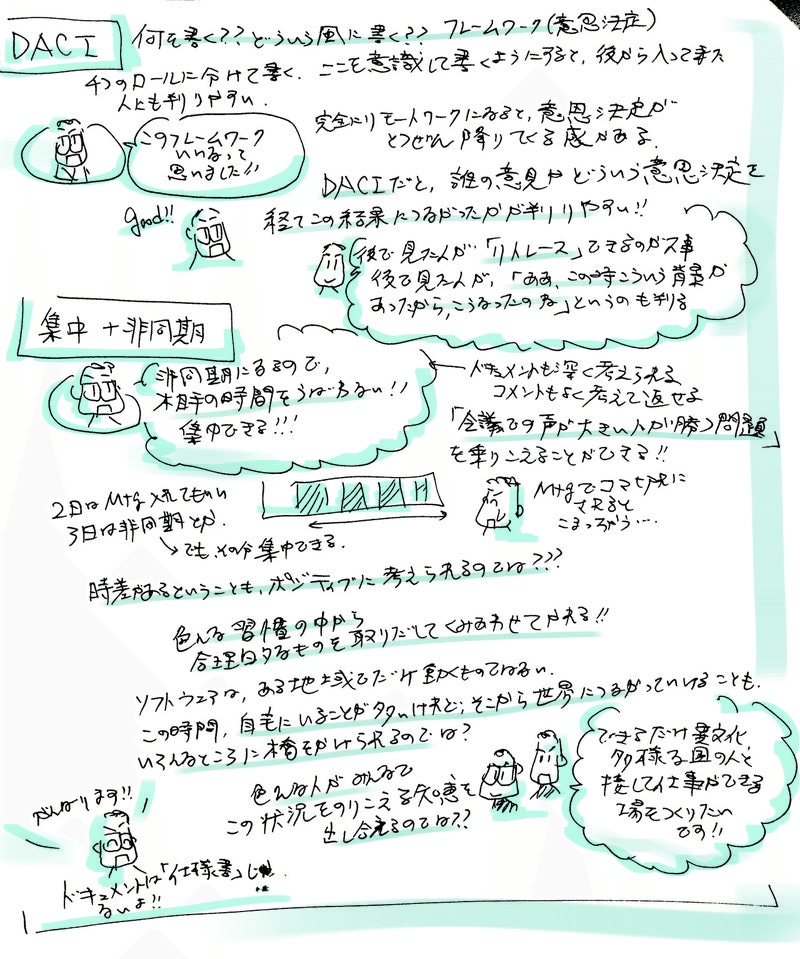 DACI
何を書く??どういう風に書く?? フレームワーク(意思決定)
4つのロールに分けて書く. ここを意識して書くようにすると, 後から入って来た
人にも判りやすい.
このフレームワーク
いいなって
思いました!!
完全にリモートワークになると, 意思決定が
とつぜん降りてくる感がある.
DACIだと, 誰の意見やどういう意思決定を
経てこの結果につながったかが判りやすい!!
good!!
後で見た人が「リトレース」できるのが大事
後で見た人が,「ああ,この時こういう背景が
あったから,こうなったのね」というのも判る
集中+非同期
非同期になるので,
相手の時間をうばわない!!
集中できる!!!
ドキュメントも深く考えられる
コメントもよく考えて返せる
「会議での声が大きい人が勝つ問題」
を乗りこえることができる!!
2日はMtg入れてもいい
3日は非同期とか.
でも,その分集中できる.
Mtgでコマ切れに
されると
こまっちゃう…
時差があるということも,ポジティブに考えられるのでは???
色んな習慣の中から
合理的なものを取りだしてくみあわせてやれる!!
ソフトウェアは,ある地域でだけ動くものではない.
この時間,自宅にいることが多いけれど,そこから世界につながっていけることも.
いろんなところに橋をかけられるのでは?
色んな人がみんなで
この状況をのりこえる知恵を
出し合えるのでは??
できるだけ異文化
多様な国の人と
接して仕事ができる
場をつくりたい
です!!
がんばります!!
ドキュメントは「仕様書」じゃ
ないよ!!